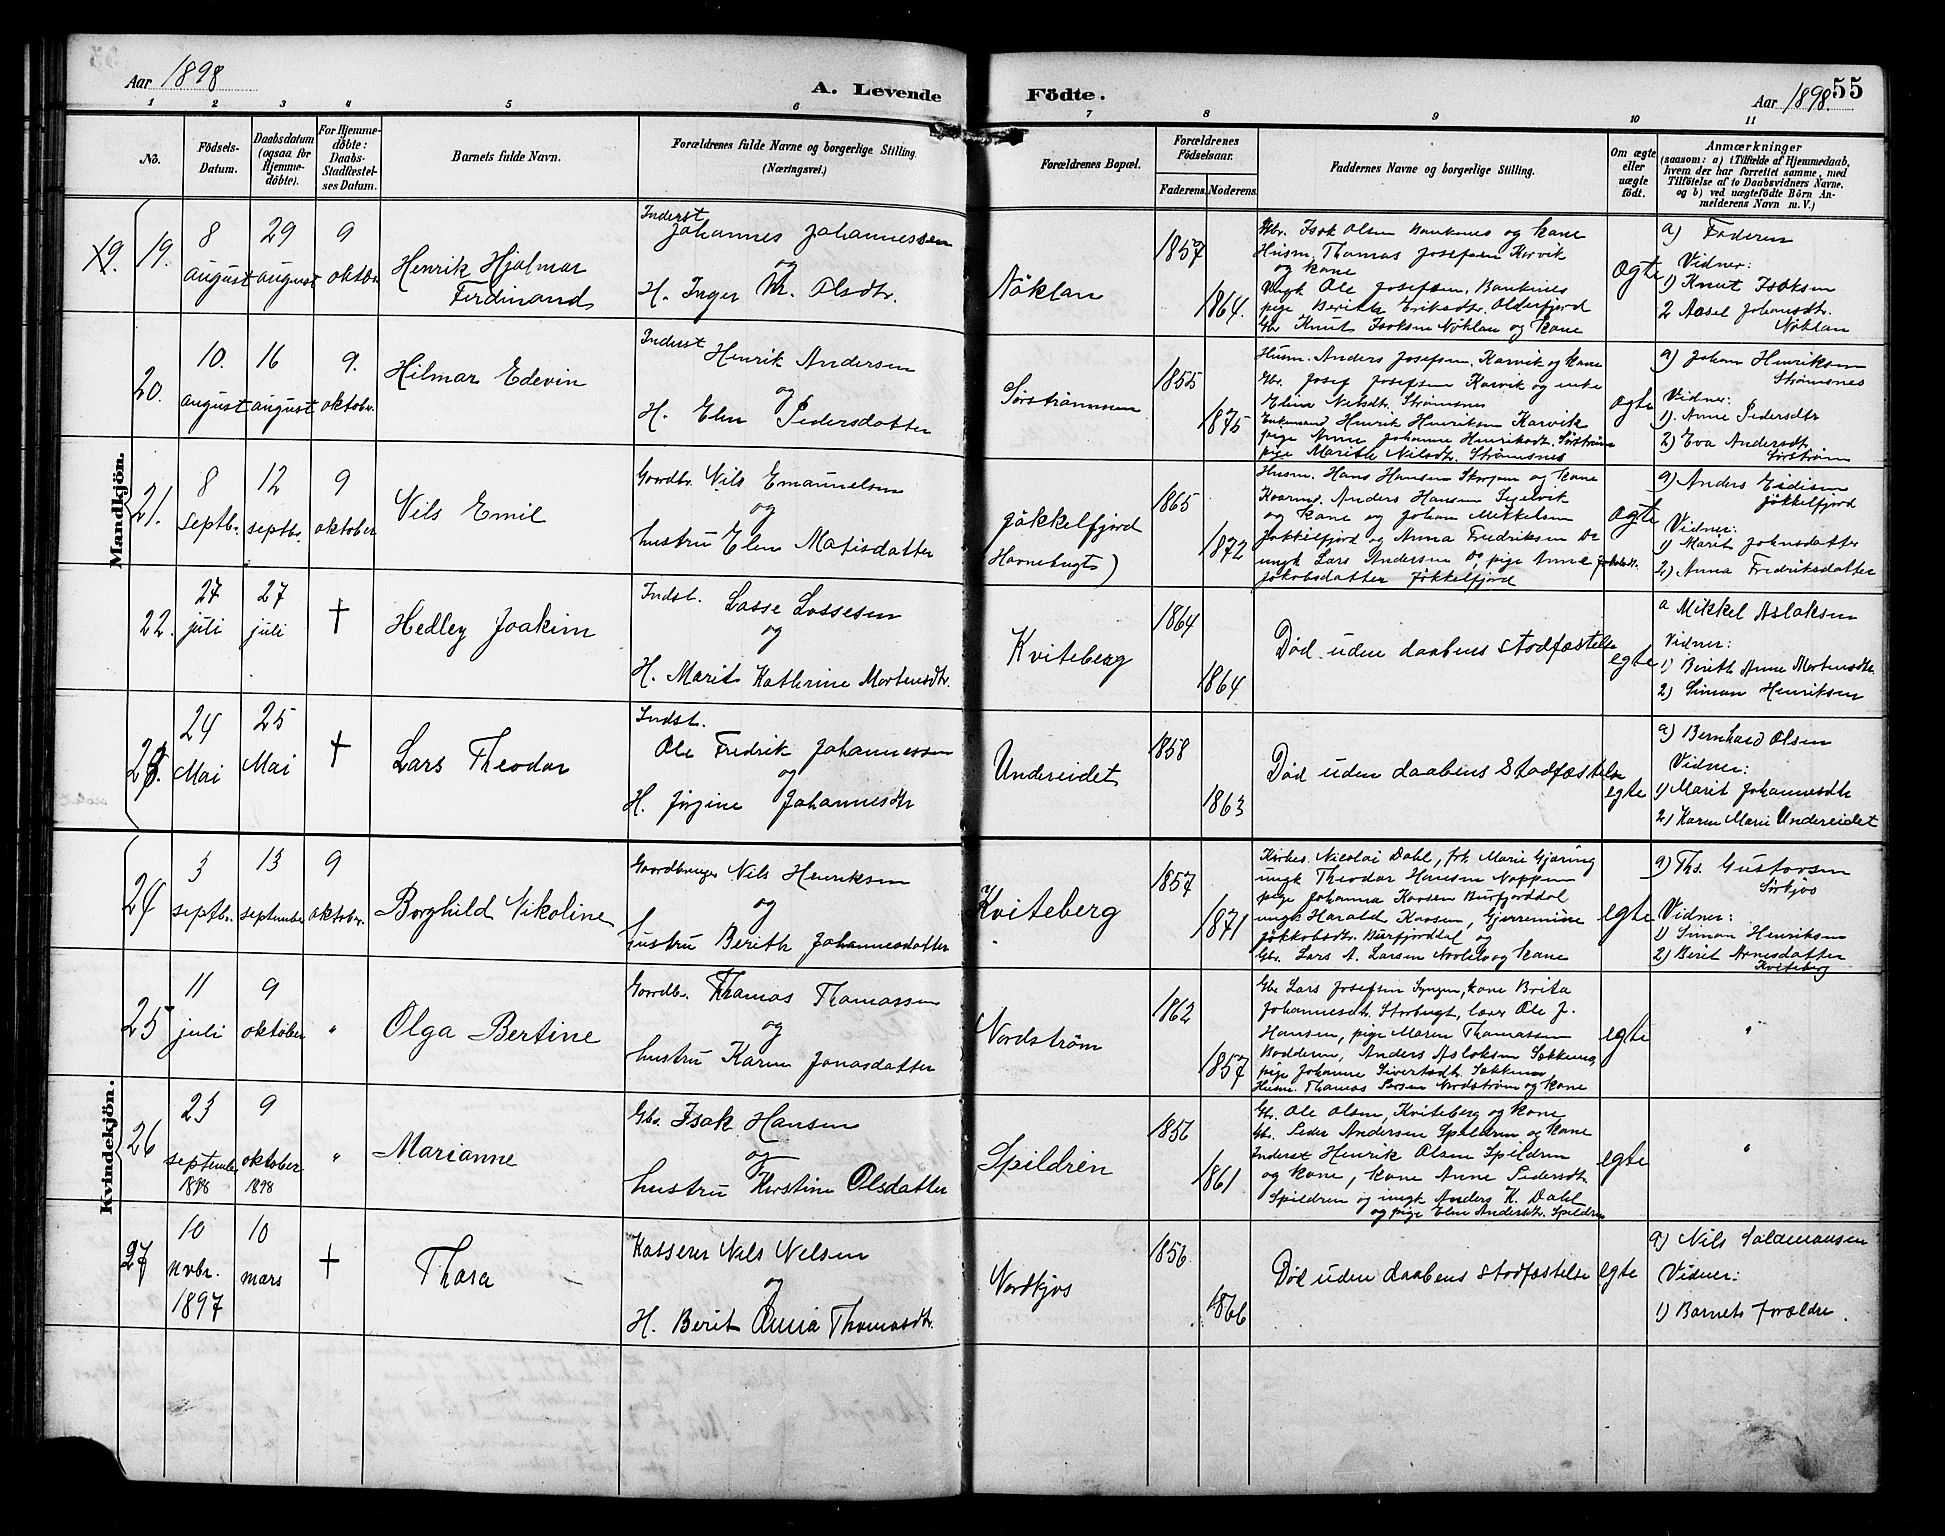 Aar 1898
A. Levende
Födte.
Aar 1898.
55
1 2 3 4 5 6 7 8 9 10 11
No.
Födsels-Datum.
Daabsdatum (ogsaa for Hjemmedöbte).
For Hjemmedöbte: Daabs-Stadfæstelses Datum.
Barnets fulde Navn.
Forældrenes fulde Navne og borgerlige Stilling. (Næringsvei.)
Forældrenes Bopæl.
Forældrenes Födselsaar.
Faderens. Moderens.
Faddernes Navne og borgerlige Stilling.
Om ægte eller uægte födt.
Anmærkninger
(saasom: a) i Tilfælde af Hjemmedaab, hvem der har forrettet samme, med Tilföielse af to Daabsvidners Navne, og b) ved uægtefödte Börn Anmelderens Navn m. V.)
Mandkjön.
19. 19.
8 august
29 august
9 oktbr
Henrik Hjalmar
Ferdinand
Inderst
Johannes Johannessen
og
H. Inger Mr. Olsdtr.
Nöklan
1857
1864.
Gbr. Isak Olsen Bankenes og kone
Husm. Thomas Josefsen Korvik
og kone
Ungk Ole Josefsen, Bankenes
pige Berith Eriksdtr. Olderfjord
Gbr Knut Isaksen Nöklan og kone
ægte
a) Faderen
Vidner:
1) Knut Isaksen
2 Aasel Johansdtr.
Nöklan
20.
10. august
16 august
9. oktobr.
Hilmar Edevin
Inderst
Henrik Andersen
og
H. Elen Pedersdatter
Sörströmmen
1855
1875
Husm. Anders Josefsen Karvik og kone
Gbr. Josef Josefsen Karvik og enke
Elina Nilsdtr. Strömsnes
Enkemand Henrik Henriksen Karvik
pige Anne Johanne Henriksdt. Sörström
pige Marith Nilsdtr. Strömsnes
ægte
a) Johan Henriksen
Strömsnes
Vidner:
1). Anne Pedersdtr
2) Eva Andersdtr
Sörström
21.
8 septb.
12 septbr.
9 oktober
Nils Emil
Gaardbr. Nils Emanuelsen
og
hustru Elen Matisdatter
Jökkelfjord
Havnebugt)
1865
1872
Husm. Hans Hansen Skorpen og kone
Anders Hansen Segelvik
og kone og Johan Mikkelsen
Jökkelfjord og Anna Fredriksen Do
ungk Lars Andersen Do, pige Anne
Jakobsdatter Jökkelfjord
ægte
a) Anders
Jökkelfjord
Vidner:
1) Marit Johnsdatter
2) Anna Fredriksdatter
22.
27 juli
27 juli
†
Hedley Joakim
Indst. Lasse Lassesen
og
H. Marit Kathrine Mortensdtr.
Kviteberg
1864
1864.
Död uden daabens stadfæstelse
egte
a Mikkel Aslaksen
Vidner:
1) Berith Anne Mortensdtr
2) Simon Henriksen
23.
24 Mai
25 Mai
†
Lars Theodor
Indst.
Ole Fredrik Johannessen
og
H. Jörgine Johannesdtr
Undereidet
1858
1863
Död uden daabens Stadfæstelse
egte
a) Bernhard Olsen
Vidner:
1) Marit Johannesdtr
2) Karen Marie Undereidet
Kvindekjön.
24
3 septb.
13 september
9 oktober.
Borghild Nikoline
Gaardbruger Nils Henriksen
og
hustru Berith Johannesdatter
Kviteberg
1857
1871
Kirkes. Nicolai Dahl, frk Marie Gjæring
ungk Theodor Hansen
pige Johanna Burfjorddal
ungk Harald
Jökkobsdtr. Burfjorddal og
Gbr. Lars A. Larsen og kone
egte
a) Ths. Gustavsen
Sörkjos
Vidner:
1) Simon Henriksen
2) Berit Arnesdatter
Kviteberg
25
11 juli
9 oktober
"
Olga Bertine
Gaardb. Thomas Thomassen
og
hustru Karen Jonasdatter
Nordström
1862
1857
Gbr Lars Josefsen Lyngen, kone Brita
Johannesdt. Storbugt, lærer Ole J.
Hansen, pige Maren Thomassen
Bodderen, Anders Aslaksen
pige Johanne Sivertsdtr.
Husm. Thomas Nordström og kone
egte
"
26
23 september 1898
9 oktober 1898
"
Marianne
Gbr. Isak Hansen
og
hustru Kerstine Olsdatter
Spildren
1856
1861
Gbr. Ole Olsen, Kviteberg og kone
Gbr. Peder Andersen Spildren og kone
Inderst Henrik Olsen Spildren
og kone, kone Anne Pedersdtr
Spildren og ungk Anders K. Dahl
og pige Elen Andersdtr. Spildren
egte
"
27
10 nvbr. 1897
10 mars
†
Thora
Kasserer Nils Nilsen
og
H. Berit Anna Thomasdtr.
Nordkjos
1856
1866
Död uden daabens stadfæstelse
egte
a) Nils Saldemansen
Vidner:
1) Barnets forældre.